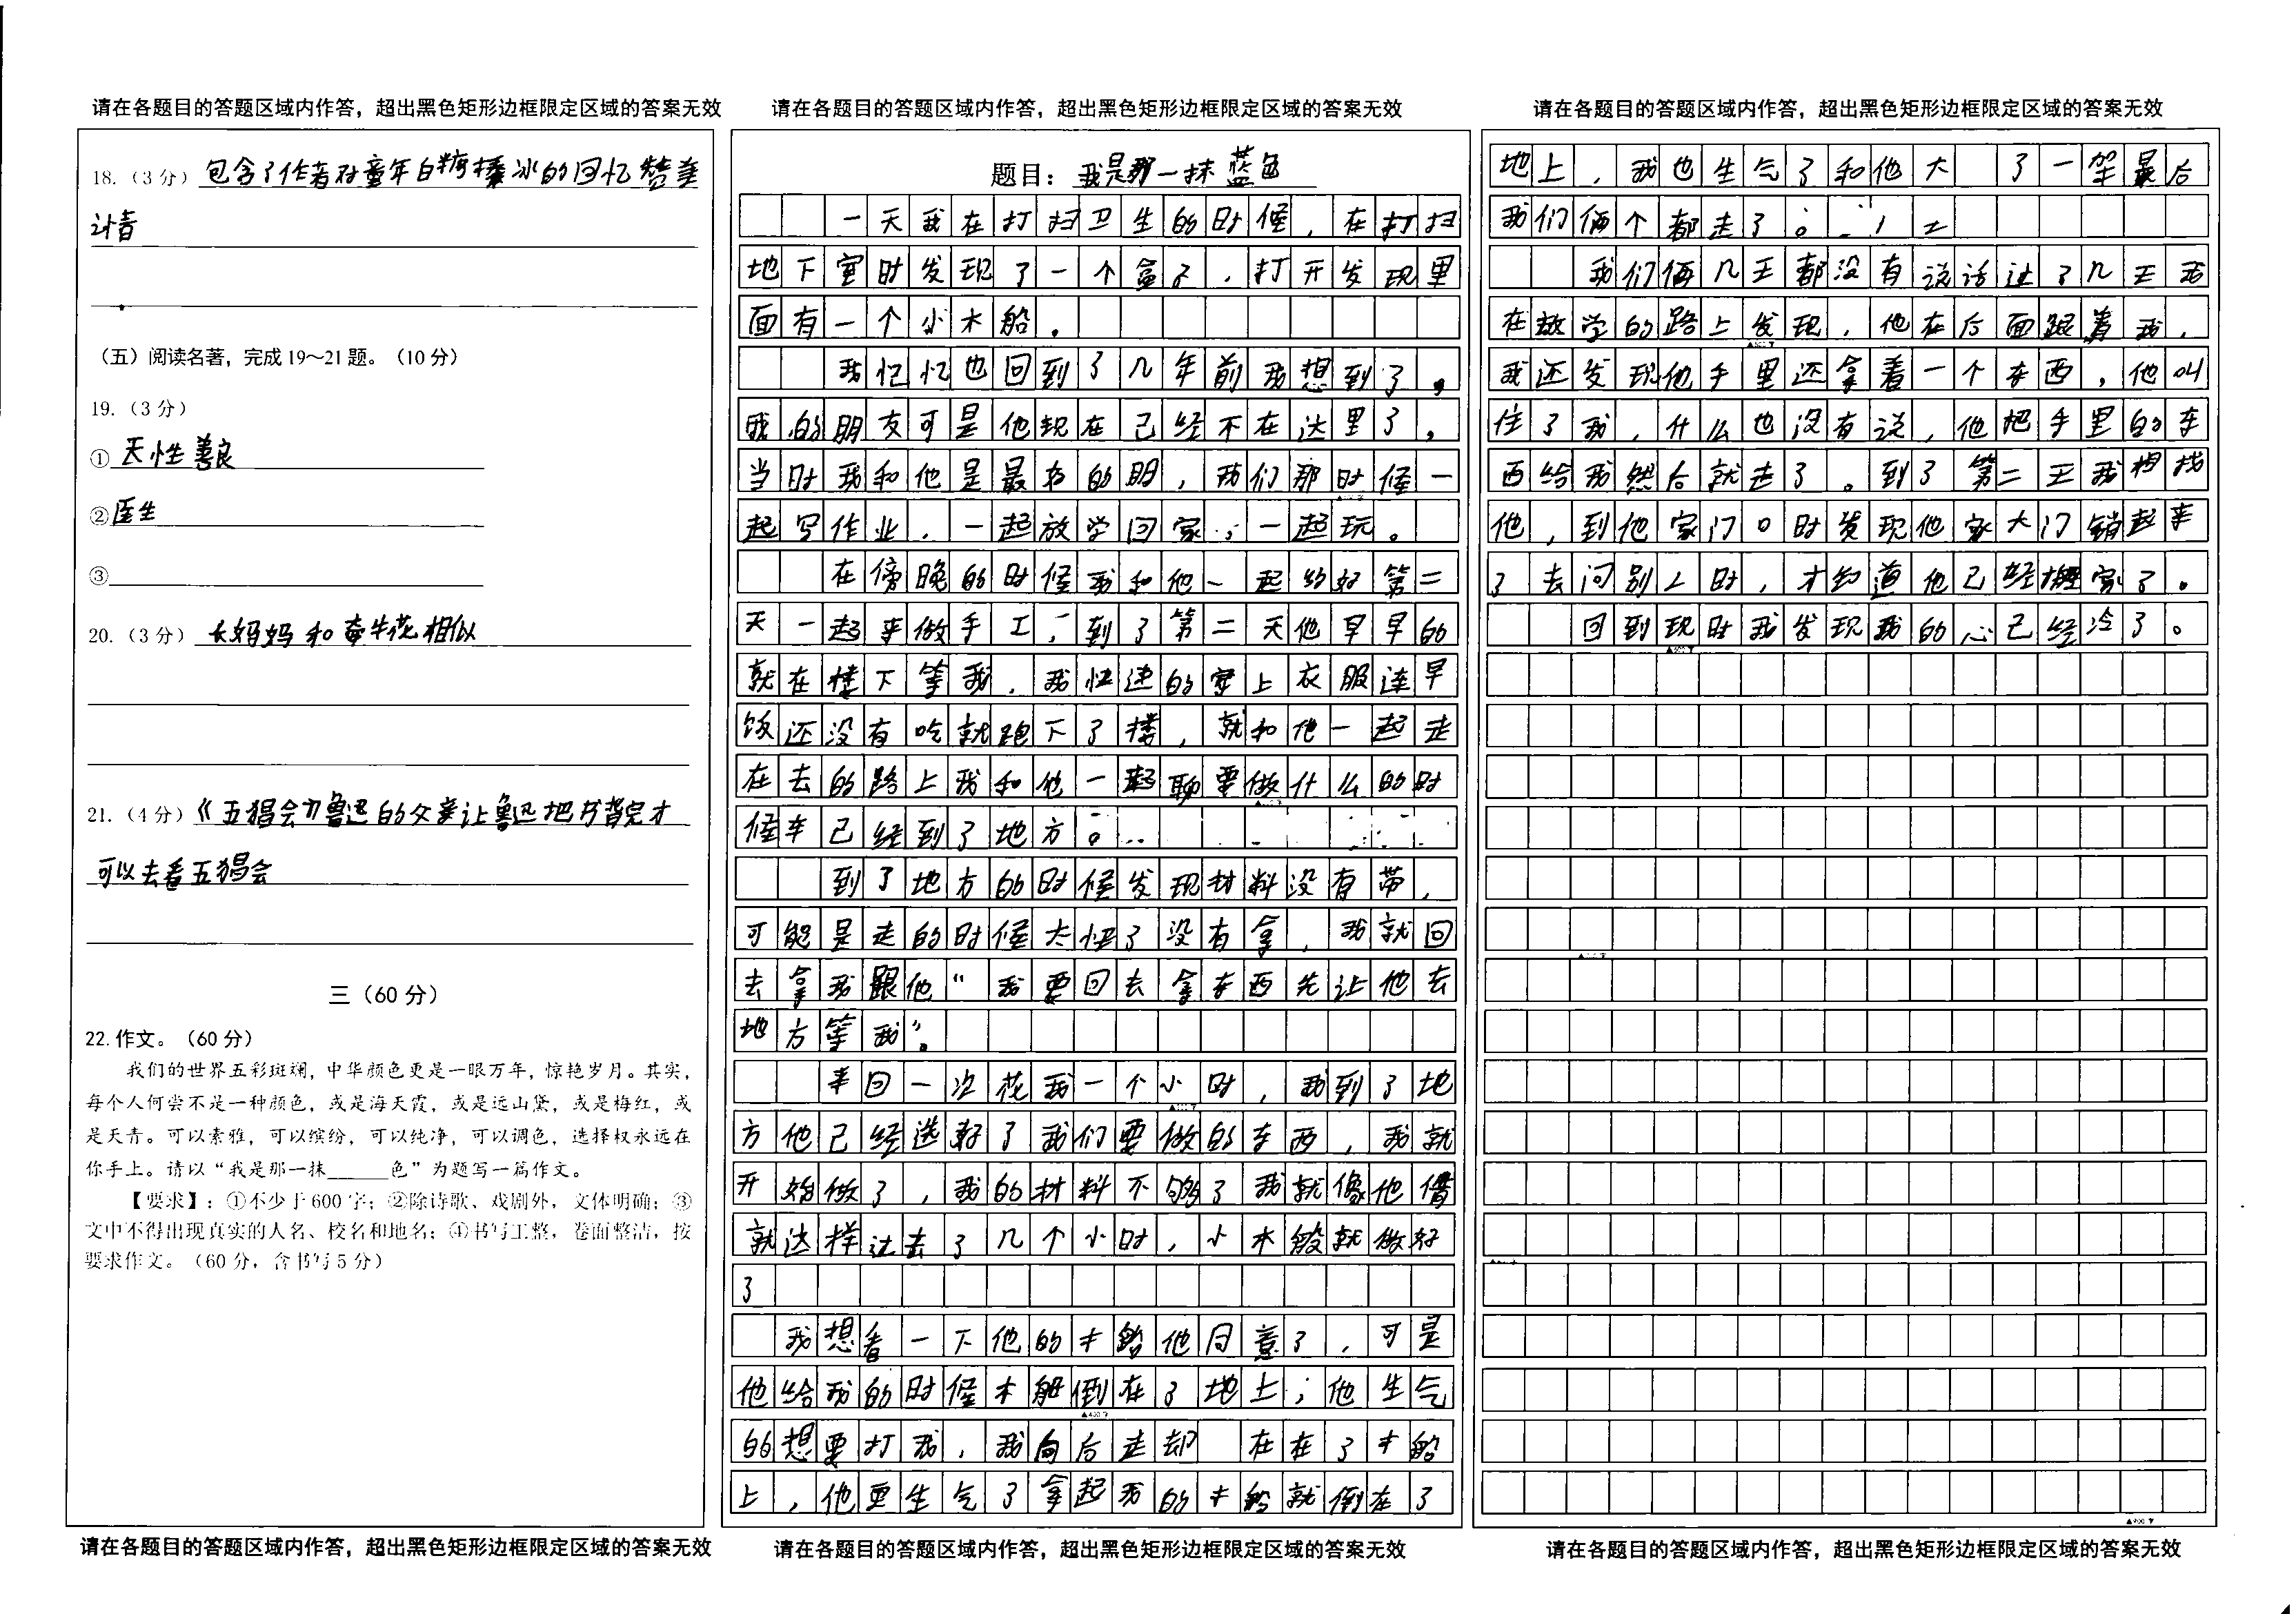 请在各题目的答题区域内作答，超出黑色矩形边框限定区域的答案无效
18.（3分）包含了作者对童年白糖棒冰的回忆赞美
之情
（五）阅读名著，完成19～21题。（10分）
19.（3分）
①天性善良
②医生
③
20.（3分）长妈妈和牵牛花相似
21.（4分）《五猖会》鲁迅的父亲让鲁迅把书背完才
可以去看五猖会
三（60分）
22.作文。（60分）
我们的世界五彩斑斓，中华颜色更是一眼万年，惊艳岁月。其实，
每个人何尝不是一种颜色，或是海天霞，或是远山黛，或是梅红，或
是天青。可以素雅，可以缤纷，可以纯净，可以调色，选择权永远在
你手上。请以“我是那一抹______色”为题写一篇作文。
【要求】：①不少于600字；②除诗歌、戏剧外，文体明确；③
文中不得出现真实的人名、校名和地名；④书写工整，卷面整洁，按
要求作文。（60分，含书写5分）
请在各题目的答题区域内作答，超出黑色矩形边框限定区域的答案无效
请在各题目的答题区域内作答，超出黑色矩形边框限定区域的答案无效
题目：我是那一抹蓝色
一天我在打扫卫生的时候，在打扫
地下室时发现了一个盒子，打开发现里
面有一个小木船。
我忆忆也回到了几年前我想到了，
我的朋友可是他现在已经不在这里了，
当时我和他是最好的朋，我们那时候一
起写作业，一起放学回家，一起玩。
在傍晚的时候我和他一起约好第二
天一起来做手工，到了第二天他早早的
就在楼下等我，我快速的穿上衣服连早
饭还没有吃就跑下了楼，就和他一起走
在去的路上我和他一起聊要做什么的时
候车已经到了地方。
到了地方的时候发现材料没有带，
可能是走的时候太忙了没有拿，我就回
去拿我跟他“我要回去拿东西先让他去
地方等我”。
来回一次花我一个小时，我到了地
方他已经选好了我们要做的东西，我就
开始做了，我的材料不够了我就像他借
就这样过去了几个小时，小木船就做好
了
我想看一下他的木船他同意了，可是
他给我的时候木船倒在了地上，他生气
的想要打我，我向后走却 在在了木船
上，他更生气了拿起我的木船就倒在了
请在各题目的答题区域内作答，超出黑色矩形边框限定区域的答案无效
请在各题目的答题区域内作答，超出黑色矩形边框限定区域的答案无效
地上，我也生气了和他大 了一架最后
我们俩个都走了。
我们俩几天都没有说话过了几天我
在放学的路上发现，他在后面跟着我，
我还发现他手里还拿着一个东西，他叫
住了我，什么也没有说，他把手里的东
西给我然后就走了。到了第二天我想找
他，到他家门口时发现他家大门锁起来
了去问别人时，才知道他已经搬家了。
回到现时我发现我的心已经冷了。
请在各题目的答题区域内作答，超出黑色矩形边框限定区域的答案无效